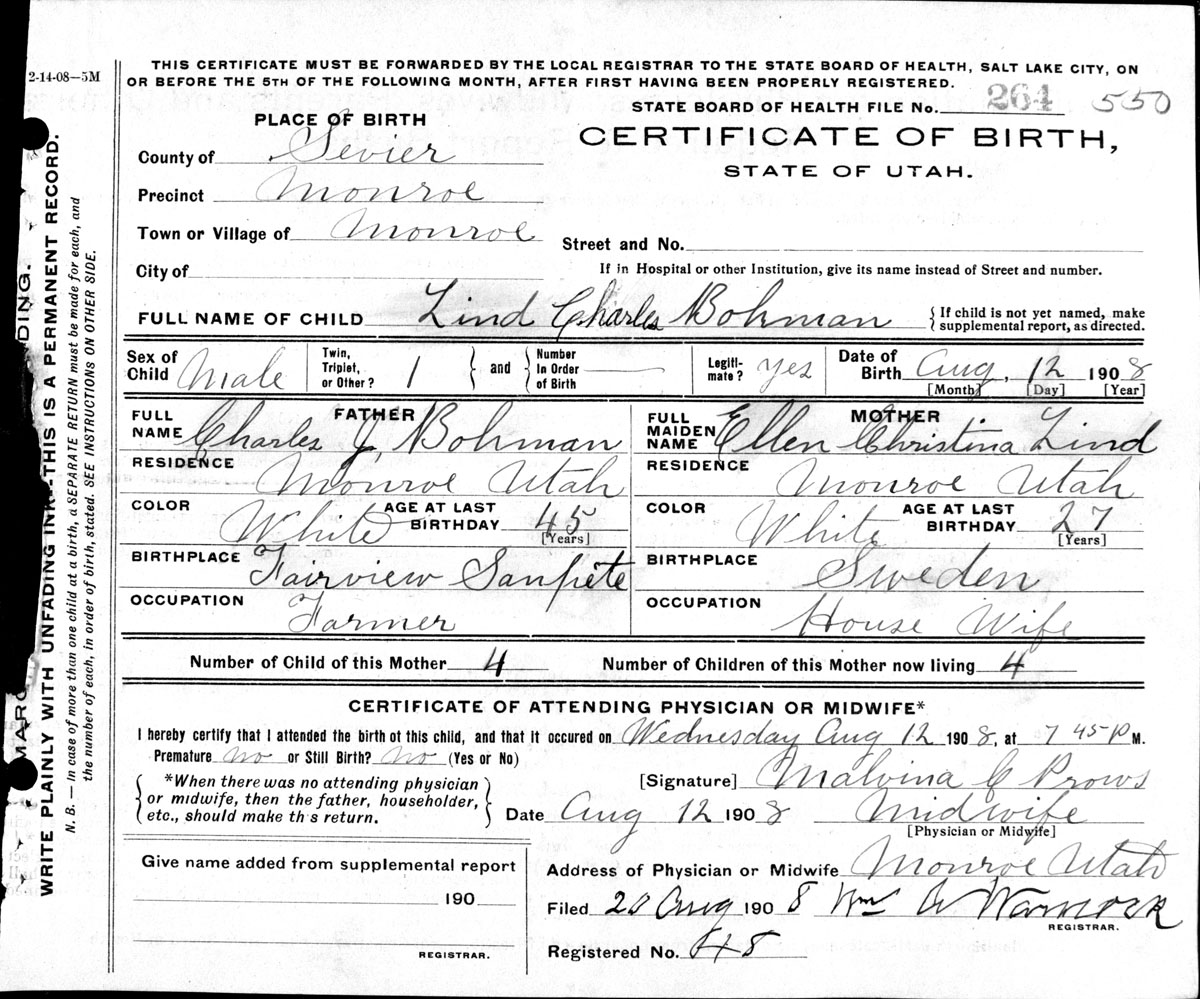 2-14-08—5M
THIS CERTIFICATE MUST BE FORWARDED BY THE LOCAL REGISTRAR TO THE STATE BOARD OF HEALTH, SALT LAKE CITY, ON
OR BEFORE THE 5TH OF THE FOLLOWING MONTH, AFTER FIRST HAVING BEEN PROPERLY REGISTERED.
STATE BOARD OF HEALTH FILE No. 264 550
PLACE OF BIRTH
CERTIFICATE OF BIRTH,
STATE OF UTAH.
County of Sevier
Precinct Monroe
Town or Village of Monroe
Street and No.
City of
If in Hospital or other Institution, give its name instead of Street and number.
FULL NAME OF CHILD Lind Charles Bohman
{ If child is not yet named, make
supplemental report, as directed.
Sex of Child Male
Twin, Triplet, or Other? 1 } and { Number In Order of Birth
Legitimate? Yes
Date of Birth Aug, 12 1908
[Month] [Day] [Year]
FATHER
FULL NAME Charles J. Bohman
RESIDENCE Monroe Utah
COLOR White AGE AT LAST BIRTHDAY 45
[Years]
BIRTHPLACE Fairview Sanpete
OCCUPATION Farmer
MOTHER
FULL MAIDEN NAME Ellen Christina Lind
RESIDENCE Monroe Utah
COLOR White AGE AT LAST BIRTHDAY 27
[Years]
BIRTHPLACE Sweden
OCCUPATION House Wife
Number of Child of this Mother 4 Number of Children of this Mother now living 4
CERTIFICATE OF ATTENDING PHYSICIAN OR MIDWIFE*
I hereby certify that I attended the birth of this child, and that it occured on Wednesday Aug 12 1908, at 7 45 P M.
Premature no or Still Birth? no (Yes or No)
{ *When there was no attending physician
or midwife, then the father, householder,
etc., should make th s return. }
[Signature] Malvina C Prows
Date Aug 12 1908 Midwife
[Physician or Midwife]
Give name added from supplemental report
190
REGISTRAR.
Address of Physician or Midwife Monroe Utah
Filed 20 Aug 1908 Wm A Warnock
REGISTRAR.
Registered No. 48
WRITE PLAINLY WITH UNFADING INK--THIS IS A PERMANENT RECORD.
N. B. — In case of more than one child at a birth, a SEPARATE RETURN must be made for each, and
the number of each, in order of birth, stated. SEE INSTRUCTIONS ON OTHER SIDE.